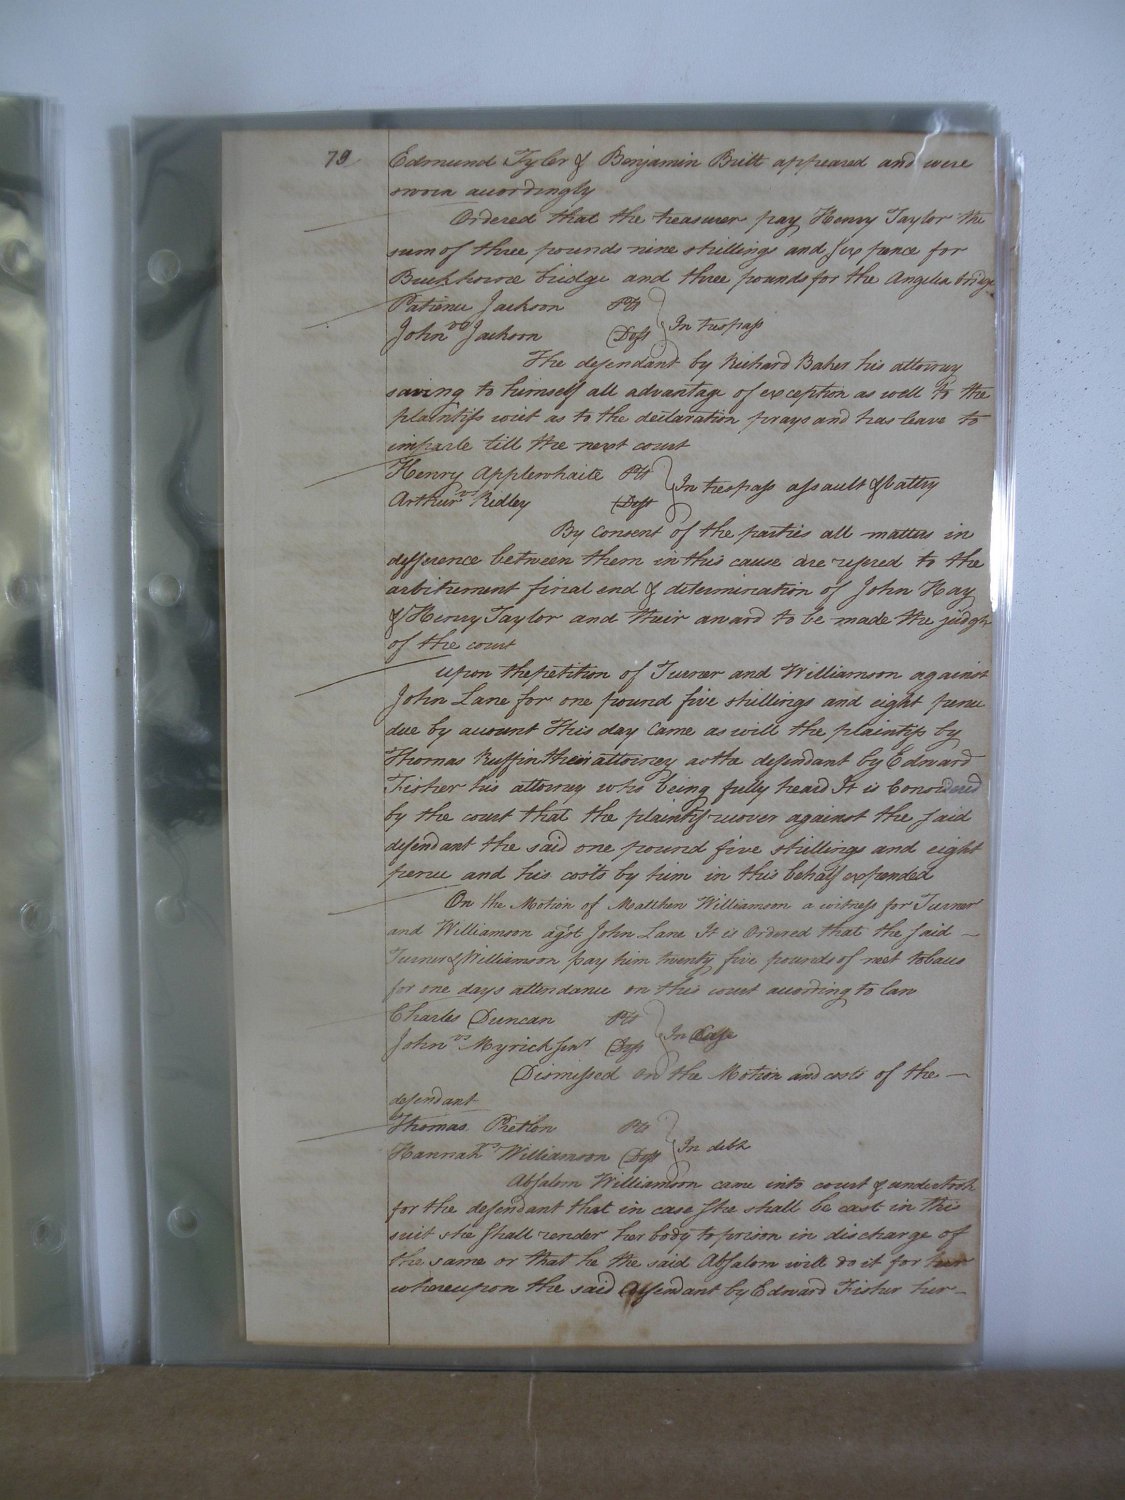 79
Edmund Tyler & Benjamin Britt appeared and were
sworn accordingly
Ordered that the treasurer pay Henry Taylor the
sum of three pounds nine shillings and six pence for
Buckhorne bridge and three pounds for the Angelica bridge
Patience Jackson Plt
vs In trespass
John Jackson Deft
The defendant by Richard Baker his attorney
saving to himself all advantage of exception as well to the
plaintifs writ as to the declaration prays and has leave to
imparle till the next court
Henry Applewhaite Plt
vs In trespass assault & battry
Arthur Ridley Deft
By Consent of the parties all matters in
difference between them in this cause are refered to the
arbitrement final end & determination of John Hay
& Henry Taylor and their award to be made the judgt
of the court
Upon the petition of Turner and Williamson against
John Lane for one pound five shillings and eight pence
due by account This day Came as will the plaintifs by
Thomas Ruffin their attorney as tha defendant by Edward
Fisher his attorney who being fully heard It is Considered
by the court that the plaintif recover against the said
defendant the said one pound five shillings and eight
pence and his costs by him in this behalf expended
On the Motion of Matthew Williamson a witness for Turner
and Williamson agst John Lane It is Ordered that the said —
Turner & Williamson pay him twenty five pounds of nett tobacco
for one days attendance on this court according to law
Charles Duncan Plt
vs In Case
John Myrick Senr Deft
Dismissed on the Motion and costs of the —
defendant
Thomas Plt
vs In debt
Hannah Williamson Deft
Absalom Williamson came into court & undertook
for the defendant that in case she shall be cast in this
suit she shall render her body to prison in discharge of
the same or that he the said Absalom will do it for her
whereupon the said defendant by Edward Fisher her —